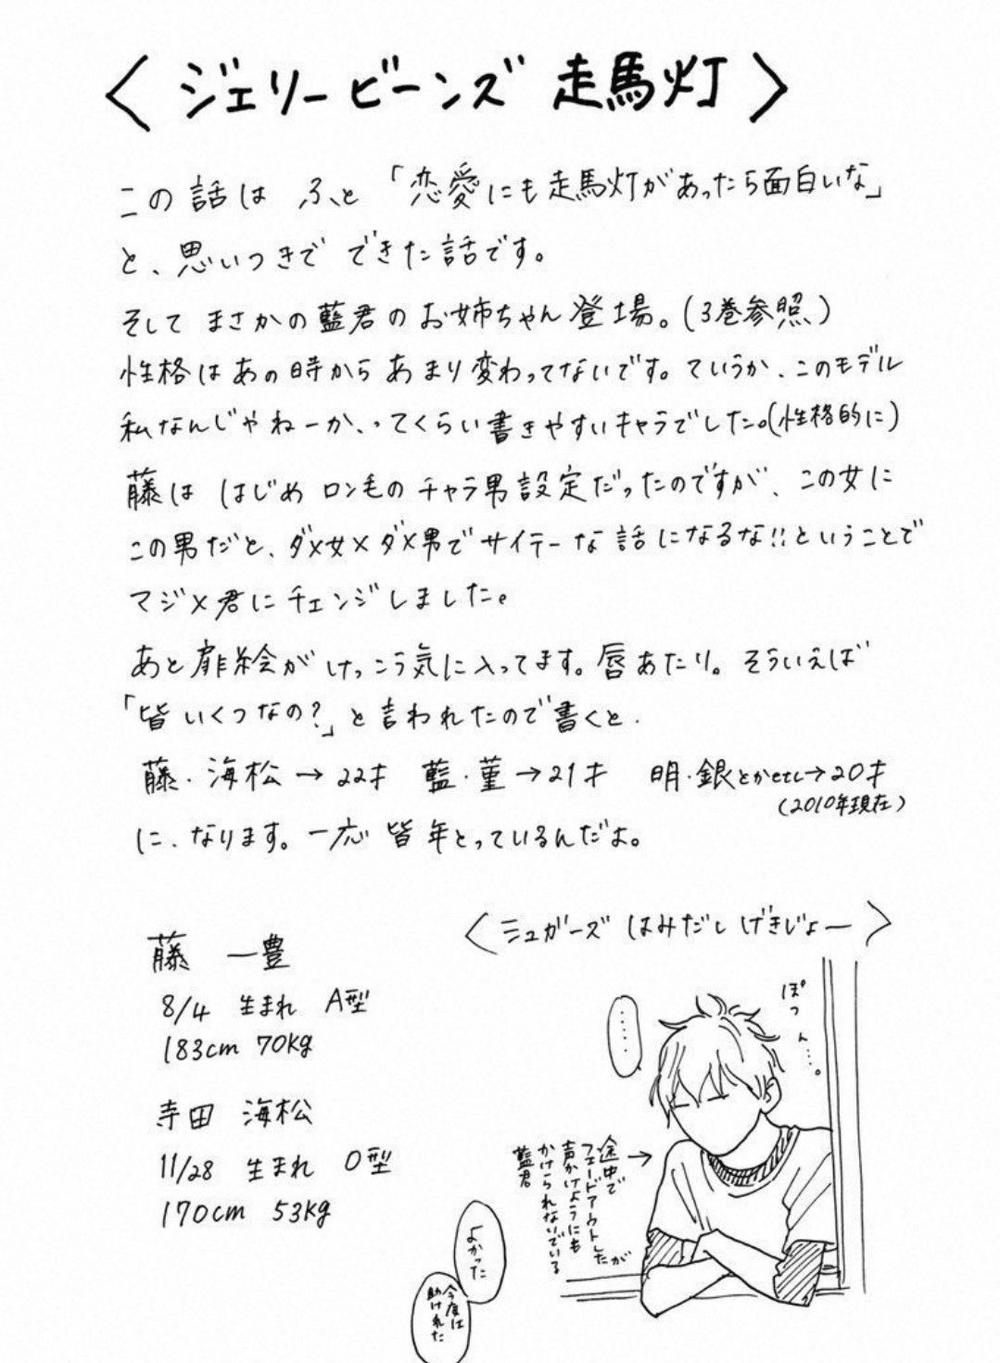 〈ジェリービーンズ 走馬灯〉
この話は ふと 「恋愛にも走馬灯があったら面白いな」
と、思いつきで できた話です。
そして まさかの藍君の お姉ちゃん登場。(3巻参照)
性格は あの時から あまり変わってないです。ていうか、このモデル
私なんじゃねーか、ってくらい書きやすいキャラでした。(性格的に)
藤は はじめ ロン毛の チャラ男設定だったのですが、この女に
この男だと、ダメ女×ダメ男で サイテーな話になるな!!ということで
マジメ君にチェンジしました。
あと扉絵が けっこう気に入ってます。唇あたり。そういえば
「皆いくつなの?」と言われたので書くと、
藤・海松→22才 藍・菫→21才 明・銀とかetc→20才
(2010年現在)
に、なります。一応 皆 年とっているんだよ。
藤 一豊
8/4 生まれ A型
183cm 70kg
寺田 海松
11/28 生まれ O型
170cm 53kg
〈シュガーズ はみだし げきじょー〉
ぽつん…。
……
途中で
フェードアウトしたが
声かけようにも
かけられないでいる
藍君
→
よかった
今度は
助けれた